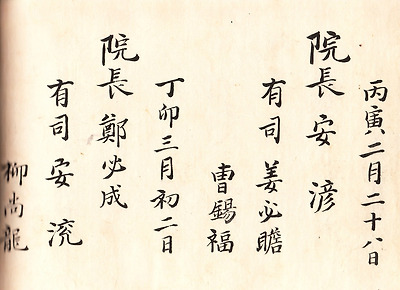 丙寅二月二十八日
院長安㴂
有司姜必瞻
曺錫福
丁卯三月初二日
院長鄭必成
有司安㳘
柳尚龍